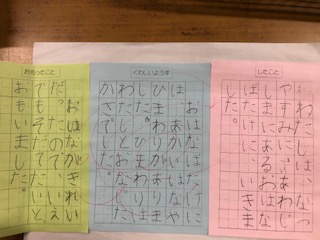 したこと
わたしは、なつ
やすみに、あわじ
しまにあるおはな
ばたけにいきま
した。
くわしいようす
おはなばたけに
は、あかいはなや
ひまわりが
ひまわりは
わたしとおなじた
かさでした。
おもったこと
おはながきれい
だったので、いえ
でもそだてたいと
おもいました。